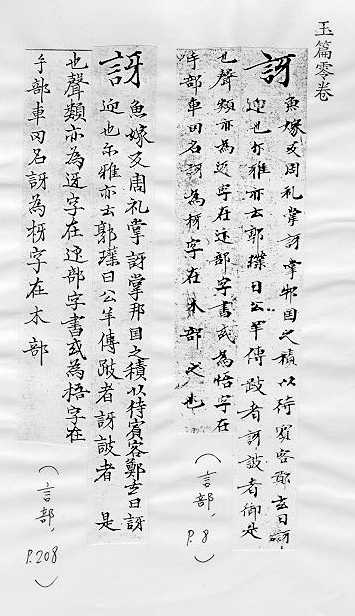 玉篇零卷
訝
魚嫁反周礼掌訝掌邦国之積以待賓客鄭玄曰訝
迎也尓雅亦云郭璞曰公羊傳跛者訝跛者御是
也聲類亦為迓字在辵部字書或為悟字在
手部車罔名訝為枒字在木部之也
(言部, P.8)
訝
魚嫁反周礼掌訝掌邦国之積以待賓客鄭玄曰訝
迎也尓雅亦云郭璞曰公羊傳跛者訝跛者 是
也聲類亦為迓字在辵部字書或為悟字在
手部車罔名訝為枒字在木部
(言部, P.208)